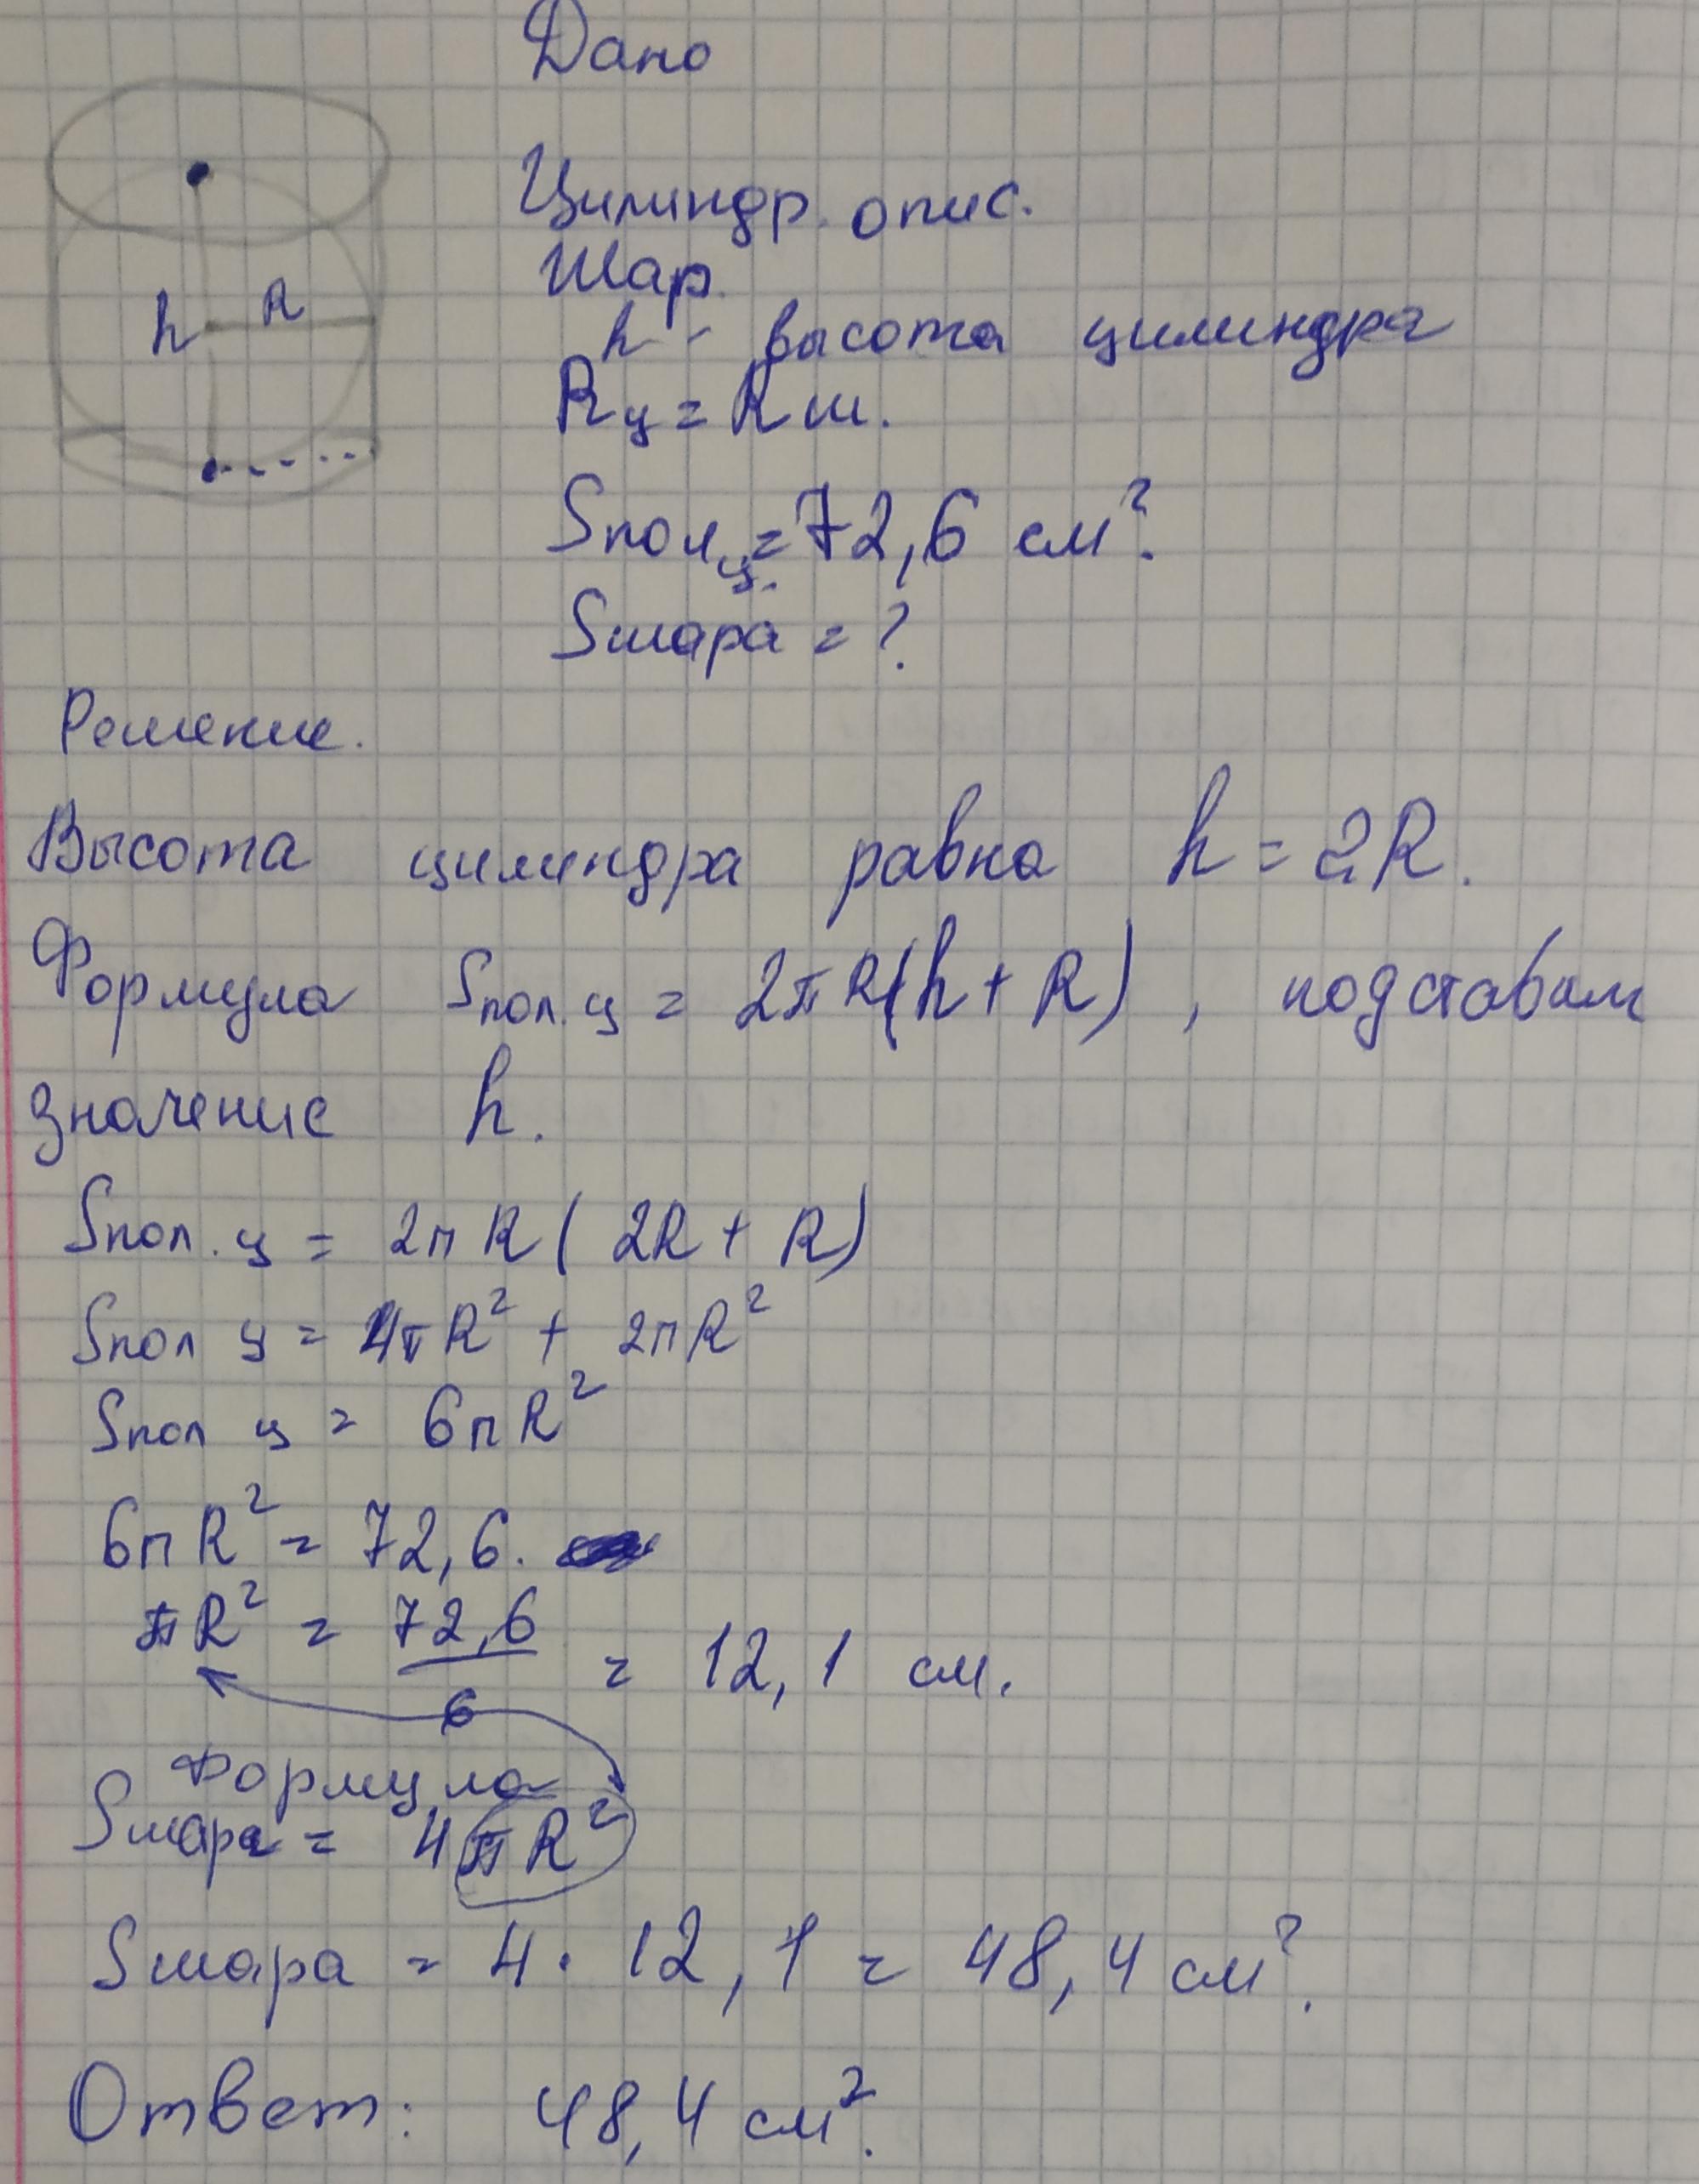 Дано
Цилиндр. опис.
Шар.
h - высота цилиндра
h R
Rц = Rш.
Sпол ц. = 72,6 см².
Sшара = ?
Решение.
Высота цилиндра равна h = 2R.
Формула Sпол. ц = 2πR(h + R), подставим
значение h.
Sпол. ц = 2пR(2R + R)
Sпол ц = 4πR² + 2пR²
Sпол ц = 6пR²
6пR² = 72,6.
πR² = 72,6/6 = 12,1 см.
Формула
Sшара = 4πR²
Sшара = 4 · 12,1 = 48,4 см².
Ответ: 48,4 см².